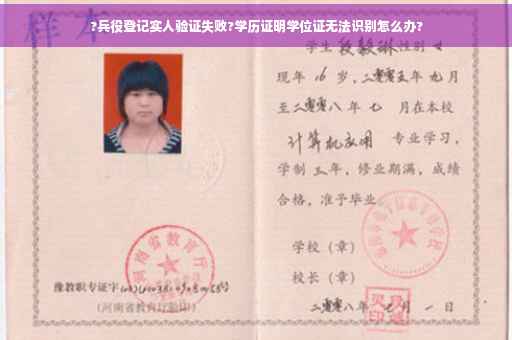 ?兵役登记实人验证失败?学历证明学位证无法识别怎么办?
样本
学生 段毅琳 性别 女
现年 16 岁，二零零五年 九月
至二零零八年 七 月在本校
计算机应用 专业学习，
学制 三年，修业期满，成绩
合格，准予毕业
学校（章）
校长（章）
豫教职专证字
（河南省教育厅验印）
二零零八年 月 一 日
河南省教育厅